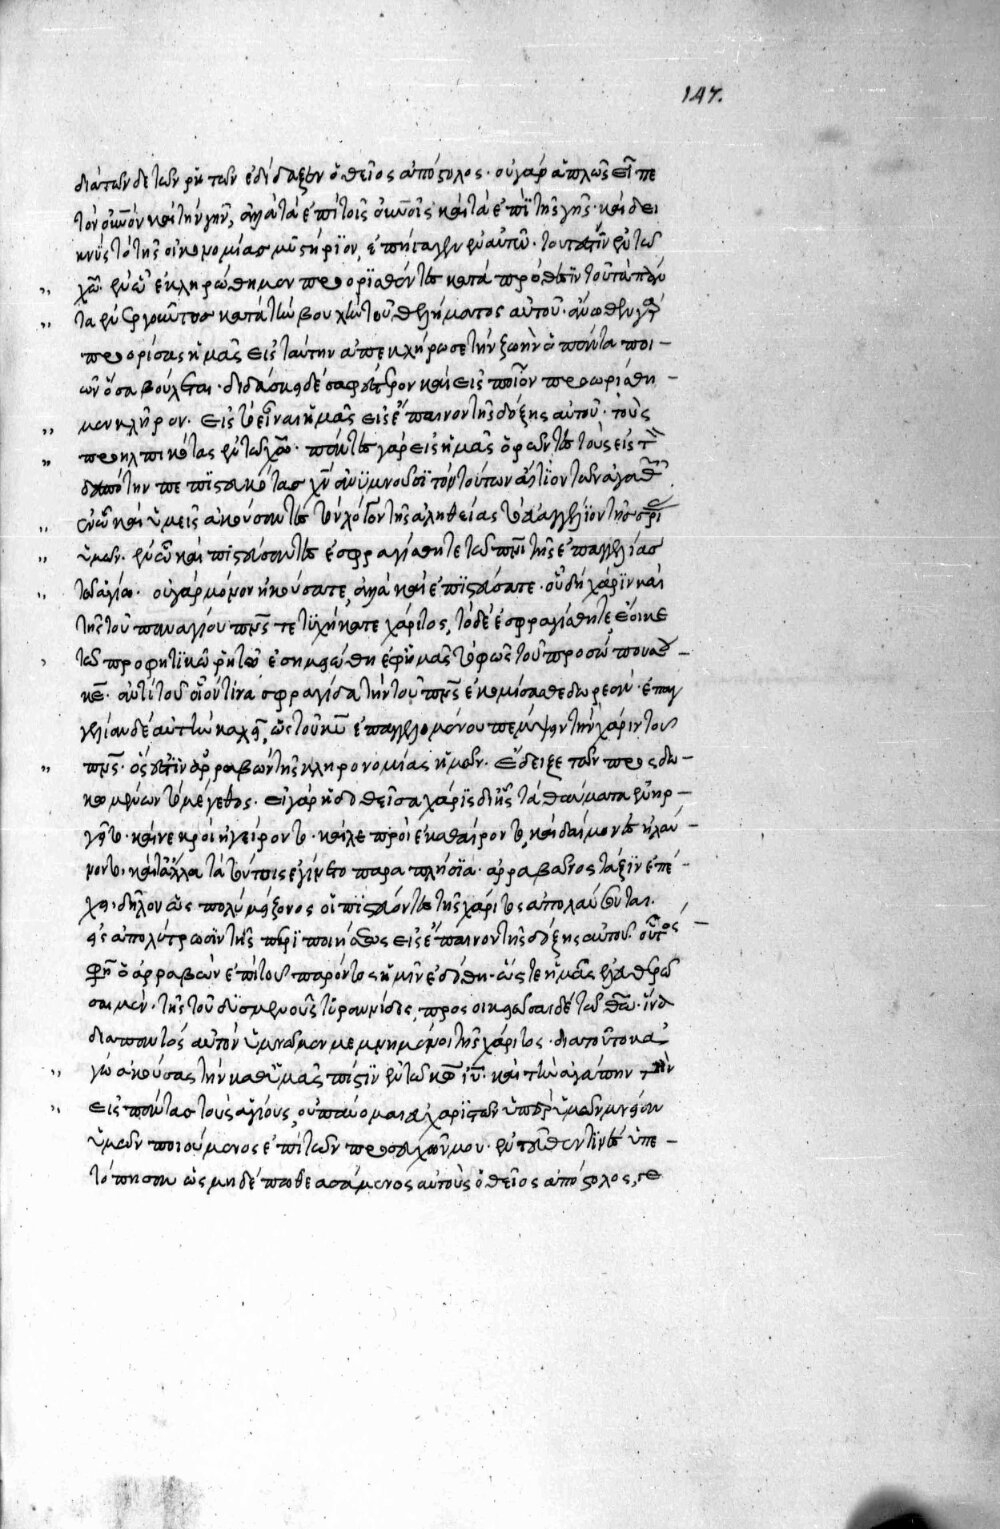 147.
διὰ τῶν δε τῶν ῥητῶν ἐδίδαξεν ὁ θεῖος ἀπόστολος · οὐ γὰρ ἁπλῶς εἶπε
τὸν οὐνὸν καὶ τὴν γῆν, ἀλλὰ τὰ ἐπὶ τοῖς οὐνοῖς καὶ τὰ ἐπὶ τῆς γῆς · καὶ δει
κνὺς τὸ τῆς οἰκονομίας μυστήριον, ἐπήγαγεν ἐν αὐτῶ · τουτέστιν ἐν τῶ
χῶ ἐν ὧ ἐκληρώθημεν προορισθέντες κατὰ πρόθεσιν τοῦ τὰ πάν
τα ἐνεργοῦντος κατὰ τὴν βουλὴν τοῦ θελήματος αὐτοῦ ·
προορίσας ἡμᾶς εἰς ταύτην ἀπεκλήρωσε τὴν ζωὴν ὁ πάντα ποι –
ῶν ὅσα βούλεται · διδάσκει δὲ σαφέστερον καὶ εἰς ποῖον προωρίσθη –
μεν κλῆρον · εἰς τὸ εἶναι ἡμᾶς εἰς ἔπαινον τῆς δόξης αὐτοῦ · τοὺς
προηλπικότας ἐν τῶ χῶ · πάντες γὰρ εἰς ἡμᾶς ὁρῶντες τοὺς εἰς τὸν
πεπιστευκότας χν ἀνυμνοῦσι τὸν τούτων αἴτιον τῶν ἀγαθῶν
ἐν ὧ καὶ ὑμεῖς ἀκούσαντες τὸν λόγον τῆς ἀληθείας τὸ εὐαγγέλιον τῆς σρι
ὑμῶν · ἐν ὧ καὶ πιστεύσαντες ἐσφραγίσθητε τῶ πνι τῆς ἐπαγγελίας
τῶ ἁγίω · οὐ γὰρ μόνον ἠκούσατε, ἀλλὰ καὶ ἐπιστεύσατε · οὗ δὴ χάριν καὶ
τῆς τοῦ παναγίου πνς τετυχήκατε χάριτος, τὸ δὲ ἐσφραγίσθητε ἔοικε
τῶ προφητικῶ ῥητῶ ἐσημειώθη ἐφ' ἡμᾶς τὸ φῶς τοῦ προσώπου σου –
κε · ἀντὶ τοῦ οἷόν τινα σφραγίδα τὴν τοῦ πνς ἐκομίσασθε δωρεάν · ἐπαγ
γελίαν δὲ αὐτὴν καλεῖ, ὡς τοῦ κυ ἐπαγγελομένου πέμψειν τὴν χάριν τοῦ
πνς · ὅς ἐστιν ἀρραβὼν τῆς κληρονομίας ἡμῶν · ἔδειξε τῶν προσδω –
κομένων τὸ μέγεθος · εἰ γὰρ ἡ δοθεῖσα χάρις δι' ἧς τὰ θαύματα ἐνηρ –
γεῖτο · καὶ νεκροὶ ἠγείροντο · καὶ λεπροὶ ἐκαθαίροντο, καὶ δαίμονες ἠλαύ –
νοντο · καὶ τἄλλα τὰ τούτοις ἐγίνετο παραπλήσια · ἀρραβῶνος τάξιν ἐπέ –
χει · δῆλον ὡς πολὺ μείζονος οἱ πιστεύοντες τῆς χάριτος ἀπολαύσονται ·
εἰς ἀπολύτρωσιν τῆς περιποιήσεως εἰς ἔπαινον τῆς δόξης αὐτοῦ · οὗτος –
φη ὁ ἀρραβὼν ἐπὶ τοῦ παρόντος ἡμῖν ἐδόθη · ὥστε ἡμᾶς ἐλευθερῶ
σαι μὲν · τῆς τοῦ δυσμενοῦς τυραννίδος, προσοικειῶσαι δὲ τῶ θῶ · ἵνα
διαπαντὸς αὐτὸν ὑμνῶμεν μεμνημένοι τῆς χάριτος · διὰ τοῦτο κα
γὼ ἀκούσας τὴν καθ' ὑμᾶς πίστιν ἐν τῶ κω ιυ · καὶ τὴν ἀγάπην τὴν
εἰς πάντας τοὺς ἁγίους, οὐ παύομαι εὐχαριστῶν ὑπὲρ ὑμῶν μνείαν
ὑμῶν ποιούμενος ἐπὶ τῶν προσευχῶν μου · ἐντεῦθέν τινες ὑπε –
τόπησαν ὡς μηδέπω θεασάμενος αὐτοὺς ὁ θεῖος ἀπόστολος, γε